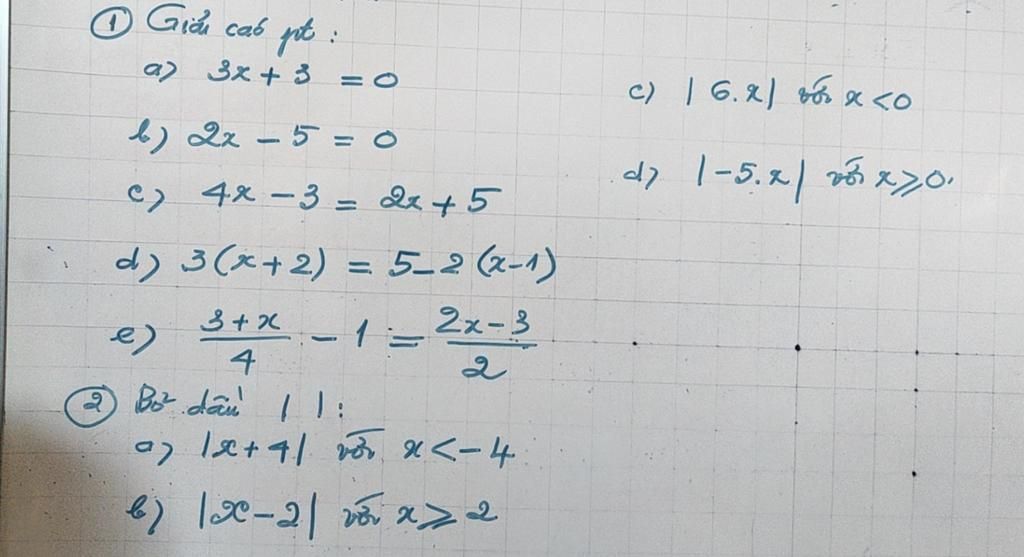 ① Giải các pt :
a) 3x + 3 = 0
b) 2x - 5 = 0
c) 4x - 3 = 2x + 5
d) 3(x+2) = 5 - 2(x-1)
e) \frac{3+x}{4} - 1 = \frac{2x-3}{2}
② Bỏ dấu | | :
a) |x+4| với x < -4
b) |x-2| với x ⩾ 2
c) |6.x| với x < 0
d) |-5.x| với x ⩾ 0.